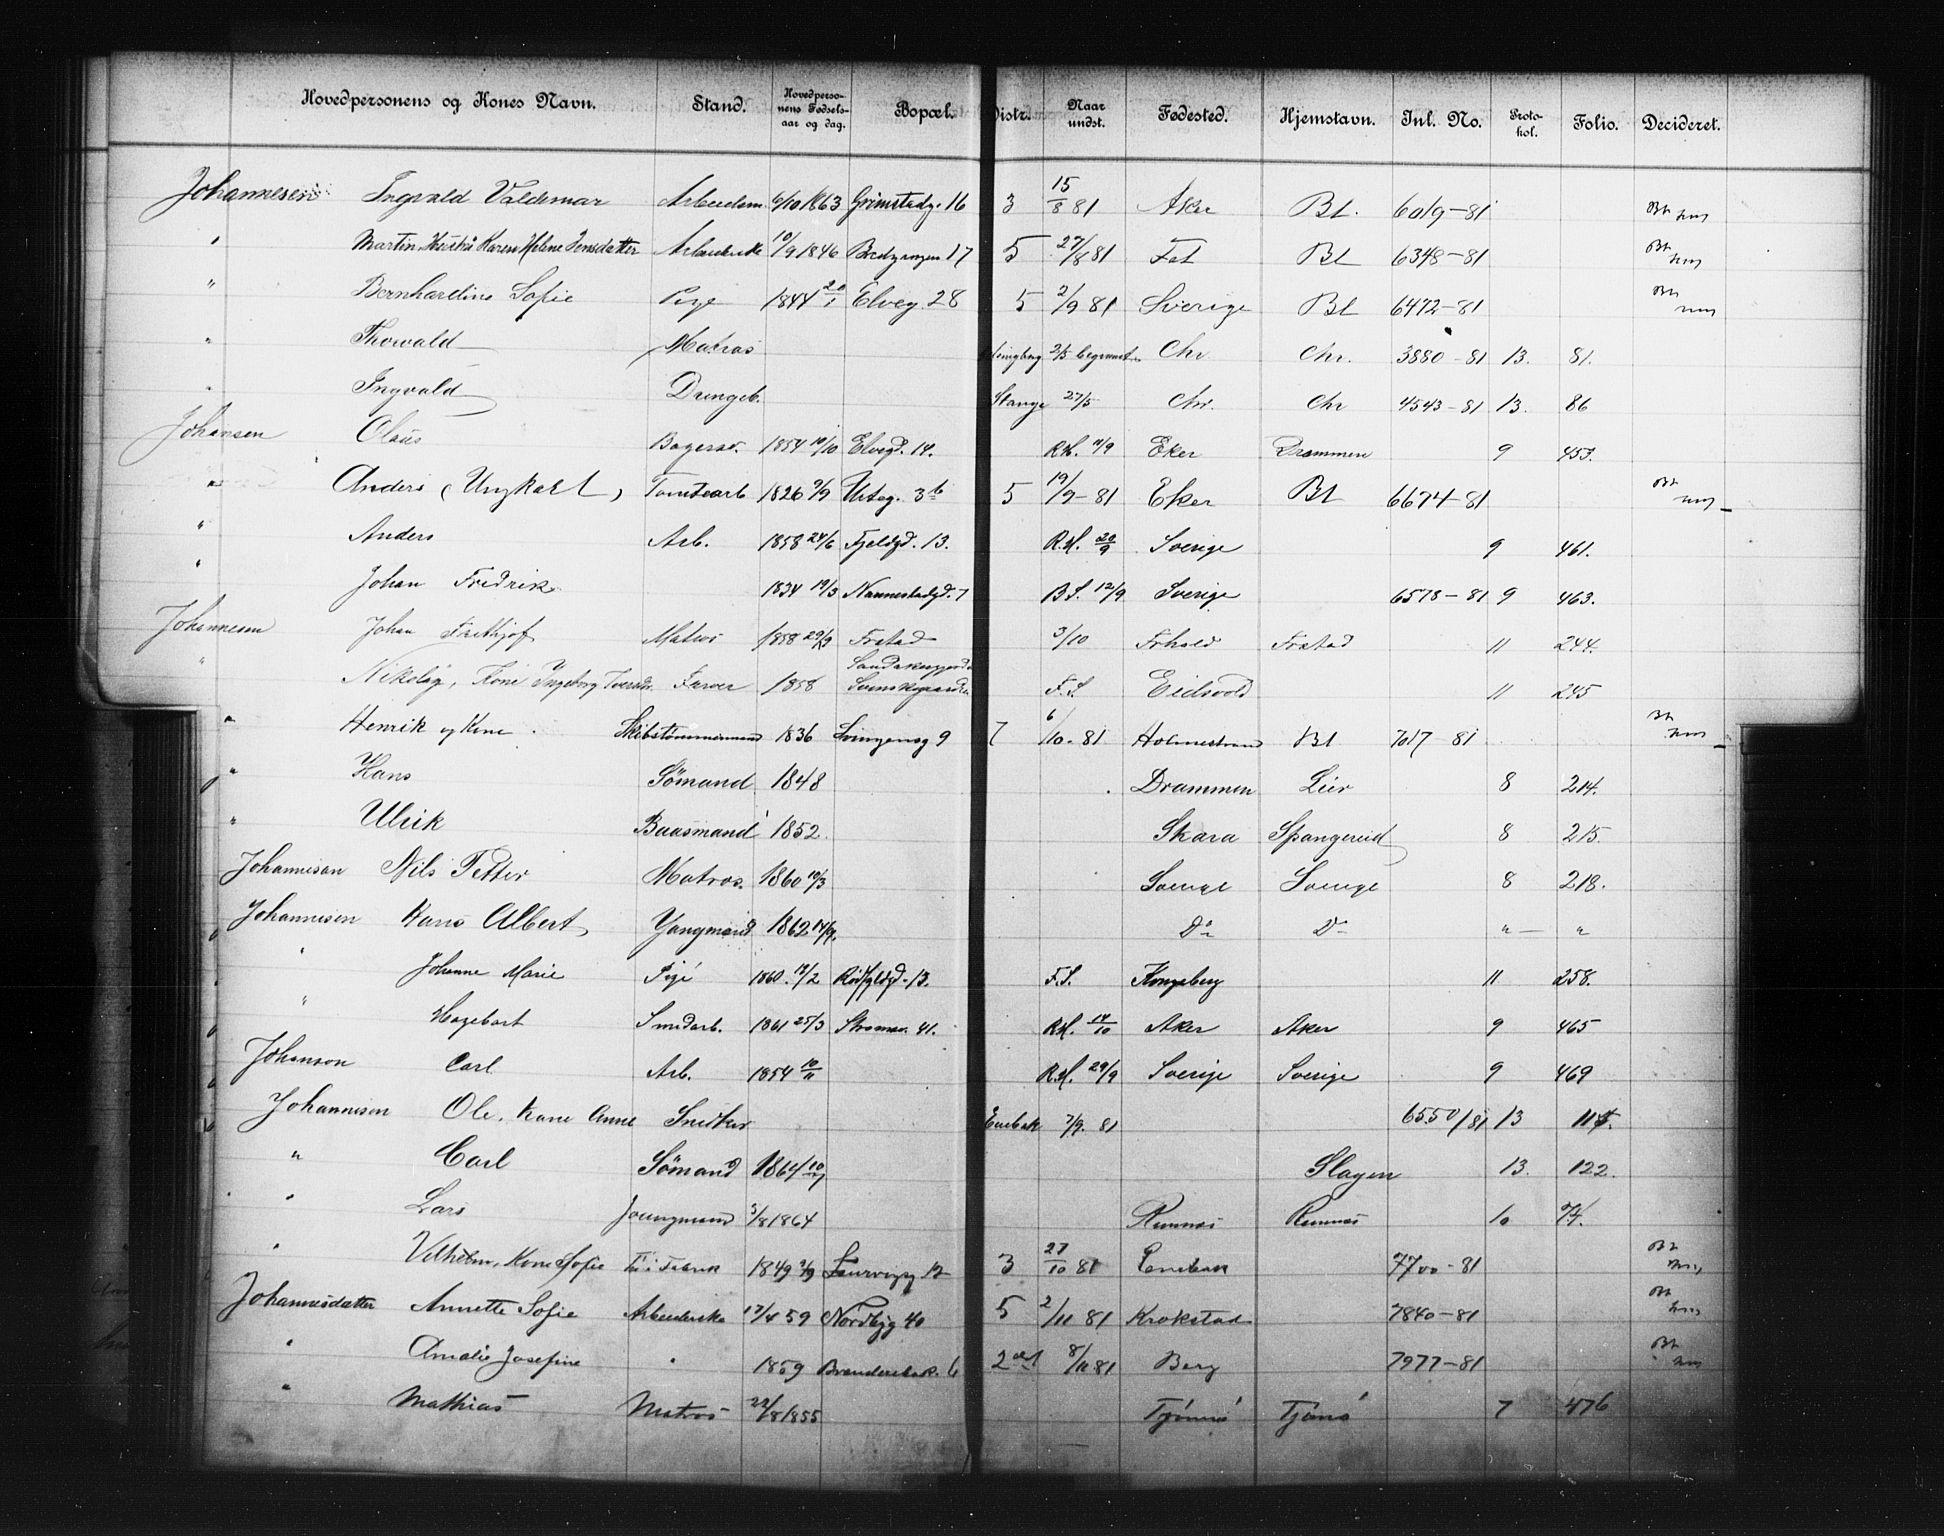 Hovedpersonens og Kones Navn. Stand. Hovedpersonens Fødselsaar og dag. Bopæl. Distr. Naar undst. Fødested. Hjemstavn. Inl. No. Protokol. Folio. Decideret.
Johannesen Ingvald Valdemar Arbeidsm. 6/10 1863 Grimstadg. 16 3 15/8 81 Aker Bl. 6019-81
" Martin Karen Helene Jensdatter 10/9 1846 17 5 27/8 81 Fet Bl 6348-81
" Bernhardine Sofie Pige 1844 20/1 Elveg. 28 5 2/9 81 Sverige Bl 6472-81
" Thorvald Matros 2/5 Chr Chr. 3880-81 13. 81.
" Ingvald Drengeb. Stange 27/5 Chr. Chr 4543-81 13. 86
Johansen Olaus Bagersv. 1854 10/10 Elvegd. 14. R.H. 11/9 Eker Drammen 9 453.
" Anders (Ungkarl) Tomtearb 1826 9/9 Urteg. 3b 5 19/9-81 Eker Bl 6674-81
" Anders Arb. 1858 24/6 Fjeldgd. 13. R.H. 20/9 Sverige 9 461.
" Johan Fredrik 1834 19/3 Nannestadgd. 7 B.S. 12/9 Sverige 6578-81 9 463.
Johannesen Johan Frithjof Matros 1858 29/9 Frstad 3/10 Frhald Frstad 11 244.
" Nikolai, Kone Ingeborg Iversdr. Farver 1858 Sandakergjorde Svenskegaarden F.S. Eidsvold 11 245
" Henrik og Kone. Skibstømmermand 1836 Svingensg 9 7 6/10-81 Holmestrand Bl 7017 81
" Hans Sömand 1848 Drammen Lier 8 214.
" Ulrik Baasmand 1852. Skara Spangereid 8 215.
Johannesen Nils Petter Matros. 1860 10/3 Sverige Sverige 8 218.
Johannesen Hans Albert Yongmand 1862 14/9. Do Do " — "
" Johanne Marie Pige 1860. 12/2 13. F.S. Kongsberg 11 258.
" Hagebart Smedarb. 1861 25/3 Strømsv. 41. R.H. 14/10 Aker Aker 9 465
Johanson Carl Arb. 1854 10/11 R.H. 29/9 Sverige Sverige 9 469
Johannesen Ole, Kone Anne Snedker Enebak 7/9. 81 6550/81 13 115.
" Carl Sömand 1864 Slagen 13. 122.
" Lars Joungmand 3/8 1864 Rennes Rennes 10 74.
" Vilhelm, Kone Sofie 1849 Laurvigg 12 3 27/10 81 Enebak 7700-81
Johannesdatter Annette Sofie Arbeiderske 17/4 59 Nordbyg 40 5 2/11 81 Krokstad 7840-81
" Amalie Josefine " 1859 Brenneribak. 6 2 8/11 81 Berg 7977-81
" Mathias Matros 22/8 1855 Tjömö Tjömö 7 476